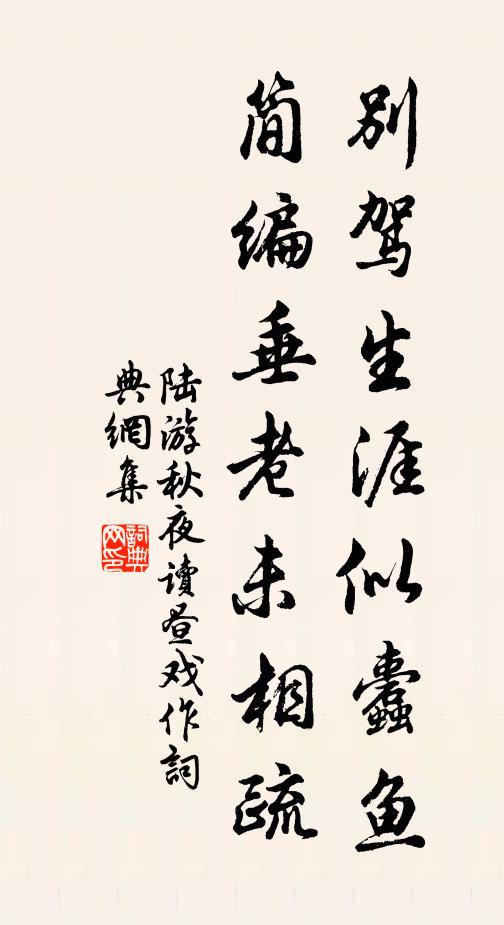 别驾生涯似蠹鱼
简编垂老未相疏
陆游秋夜读昼戏作词
典網集
詞典
网印